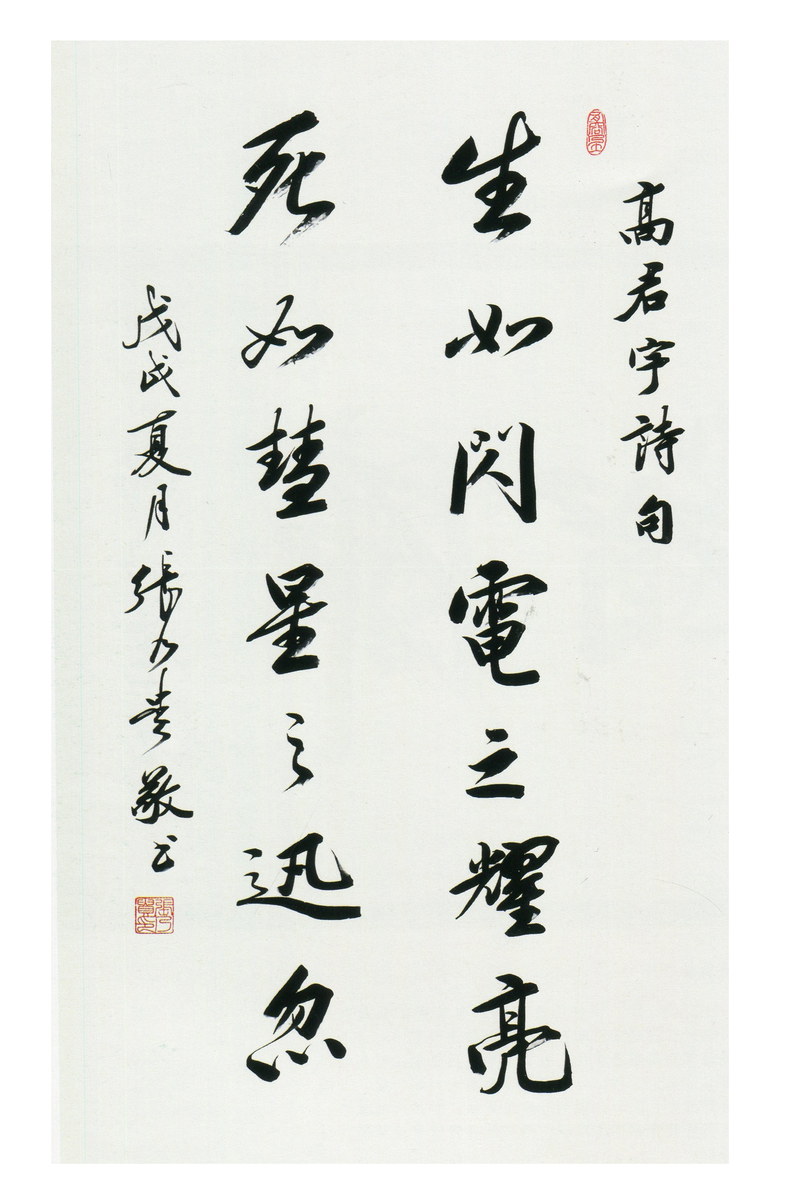 高君宇詩句
生如閃電之耀亮
死如彗星之迅忽
戊戌夏月張乃貴敬书